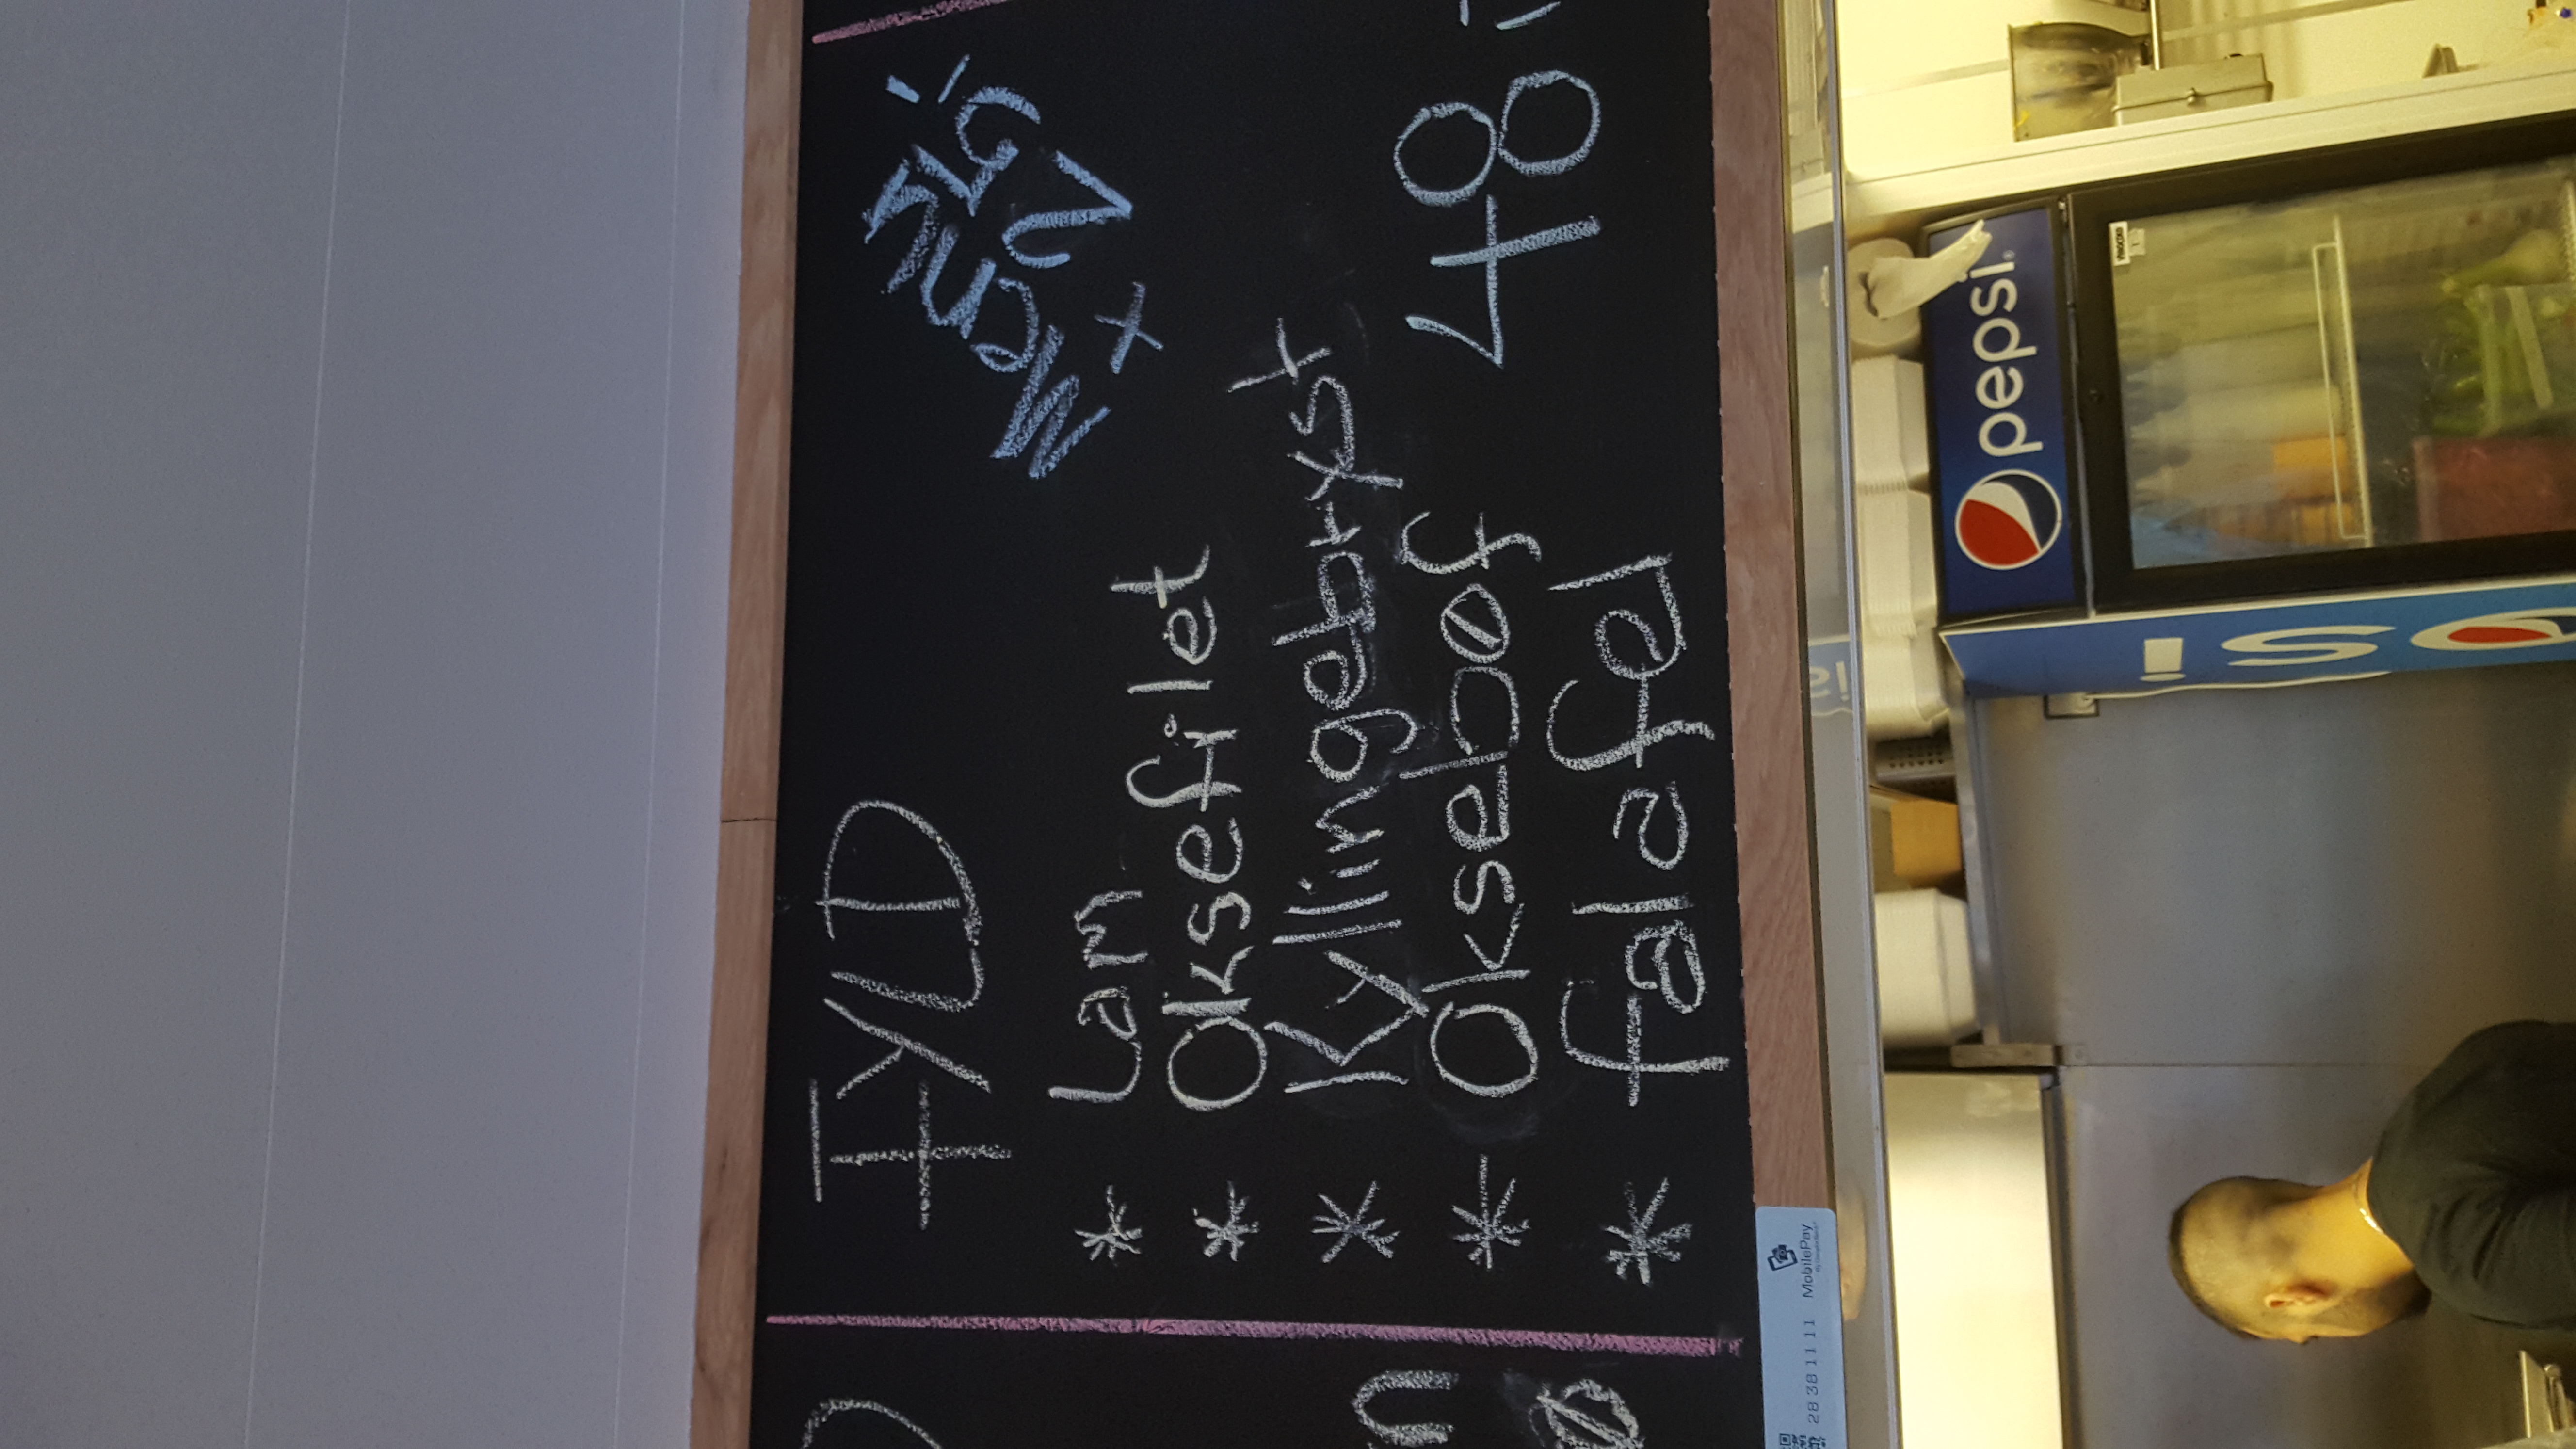 FYLD
Menu
x 25,-
* Lam
* Oksefilet
* Kyllingebryst
* Oksebøf 48,-
* falafel
n
ø
28 38 11 11 MobilePay
pepsi